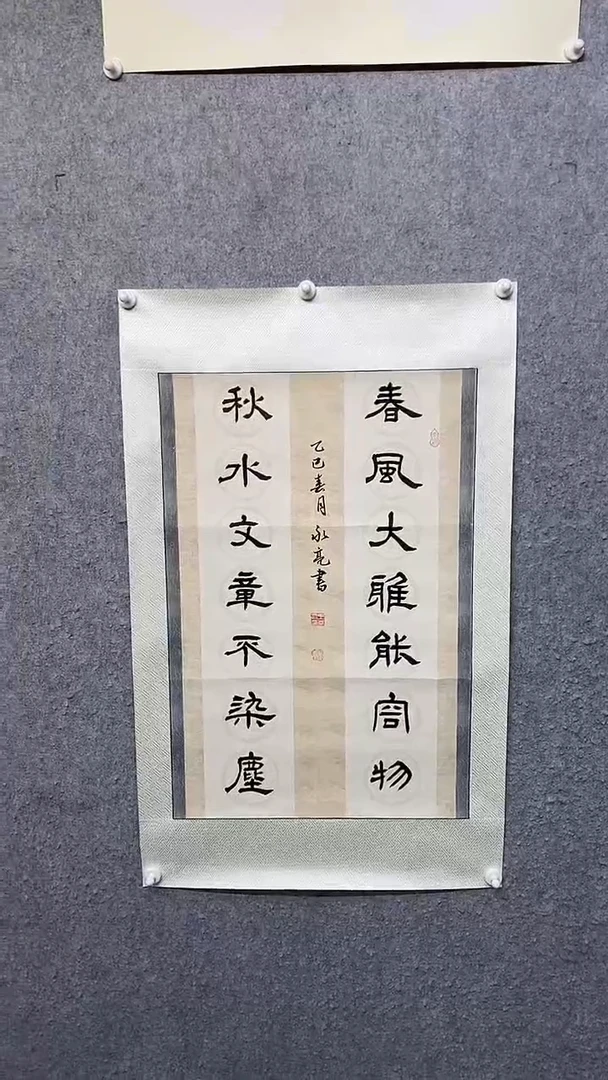 春風大雅能容物
秋水文章不染塵
乙巳春月永亮書